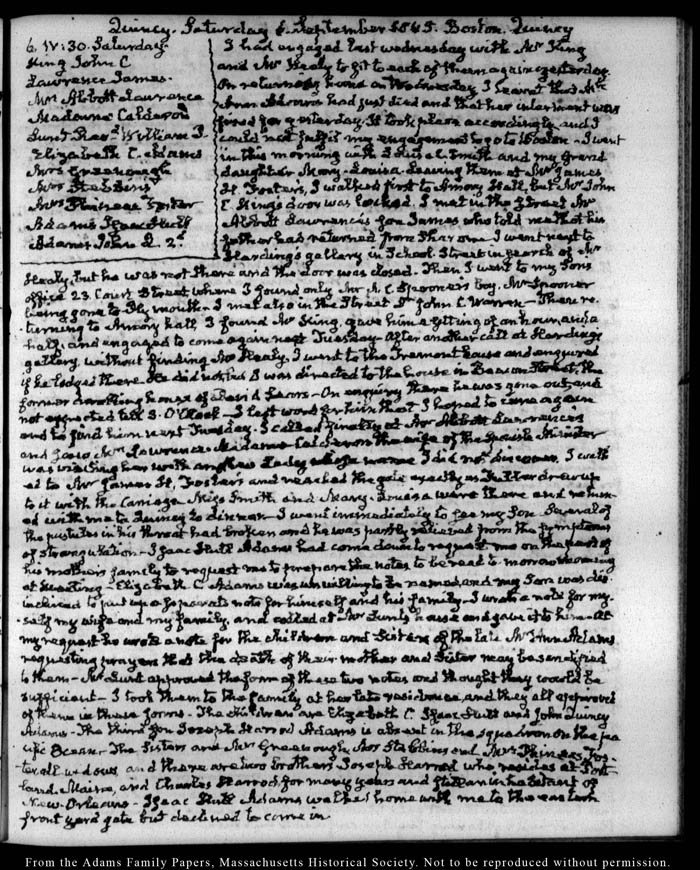 Quincy. Saturday 6. September 1845. Boston. Quincy
6. IV:30. Saturday
King John C
Lawrence James.
Mrs Abbott Lawrence
Madame Calderon
Lunt Revd William P.
Elizabeth C. Adams
Mrs Greenough
Mrs Stebbins
Mrs Phineas Foster
Adams Isaac Hull
Adams John Q. 2d
I had engaged last Wednesday with Mr King
and Mr Healy to sit to each of them again yesterday.
On returning home on Wednesday I learnt that Mrs
Anne Adams had just died and that her interment was
fixed for yesterday. It took place accordingly and I
could not fulfil my engagement to go to Boston – I went
in this morning with Louisa C. Smith and my Grand
daughter Mary-Louisa. Leaving them at Mr James
H. Foster's, I walked first to Amory Hall, but Mr John
C. King's door was locked. I met in the Street Mr
Abbott Lawrence's son James who told me that his
father has returned from Sharon. I went next to
Harding's gallery in School Street in search of Mr
Healy, but he was not there and the door was closed. Then I went to my Sons
office 23 Court Street where I found only Mr A. C. Spooner's boy. Mr Spooner
being gone to Plymouth – I met also in the Street Dr John C. Warren – There re-
turning to Amory hall, I found Mr King, gave him a sitting of an hour and a
half, and engaged to come again next Tuesday – After another call at Harding's
gallery, without finding Mr Healy, I went to the Tremont house and enquired
if he lodged there. He did not but I was directed to the house in Beacon Street, the
former dwelling house of David Sears – On enquiry there he was gone out, and
not expected till 3. O'Clock – I left word for him that I hoped to come again
and to find him next Tuesday. I called finally at Mr Abbott Lawrence's
and saw Mrs Lawrence. Madame Calderon the wife of the Spanish Minister
was visiting her with another Lady whose name I did not discover. I walk-
ed to Mr James H. Foster's and reached the gate exactly as drew up
to it with the Carriage. Miss Smith and Mary-Louisa were there and return-
ed with me to Quincy to dinner – I went immediately to see my Son. Several of
the pustules in his throat had broken and he was partly relieved from the symptoms
of strangulation – Isaac Hull Adams had come down to request me on the part of
his mother's family to request me to prepare the notes to be read to-morrow morning
at Meeting – Elizabeth C. Adams was unwilling to be named, and my Son was dis-
inclined to put up a separate note for himself and his family – I wrote a note for my-
self my wife and my family, and called at Mr Lunt's house and gave it to him – At
my request he wrote a note for the children and Sisters of the late Mrs Ann Adams
requesting prayers that the death of their mother and Sister may be sanctified
to them – Mr Lunt approved the form of these two notes and thought they would be
sufficient – I took them to the family at her late residence, and they all approved
of them in these forms – The children are Elizabeth C. Isaac Hull and John Quincy
Adams – The third son Joseph Harrod Adams is absent in the squadron on the Pa-
cific Ocean. The Sisters are Mrs Greenough, Mrs Stebbins and Mrs Phineas Fos-
ter all widows, and there are two brothers Joseph Harrod who resides at Port-
land, Maine, and Charles Harrod for many years and still an inhabitant of
New-Orleans – Isaac Hull Adams walked home with me to the eastern
front yard gate but declined to come in
From the Adams Family Papers, Massachusetts Historical Society. Not to be reproduced without permission.